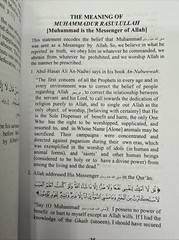 THE MEANING OF
MUHAMMADUR RASULULLAH
[Muhammad is the Messenger of Allah]
This statement encodes the belief that Muhammad
was sent as a Messenger by Allah. So, we believe in what he
reported in truth, we obey him in whatever he commanded, we
abstain from whatever he prohibited, and we worship Allah in
the manner he prescribed.
1. Abul-Hasan Ali An-Nadwi says in his book An-Nubuwwah:
"The first concern of all the Prophets in every age and in
every environment was to correct the belief of people
regarding Allah, to correct the relationship between
the servant and his Lord, to call towards the dedication of
religion purely to Allah, and to single out Allah as the
only object of worship, [believing with certainty] that He
is the Sole Dispenser of benefit and harm, the only One
Who has the right to be worshipped, supplicated, and
resorted to, and in Whose Name [Alone] animals may be
sacrificed. Their campaigns were concentrated and
directed against paganism during their own eras, which
was exemplified in the worship of idols (in human and
other forms), and 'saints' and other human beings
considered to be holy or to have divine powers) from
among the living and the dead."
2. Allah addressed His Messenger in the Qur'ân:
"Say (O Muhammad): I possess no power of
benefit or hurt to myself except as Allah wills. If I had the
knowledge of the Ghaib (unseen), I should have secured